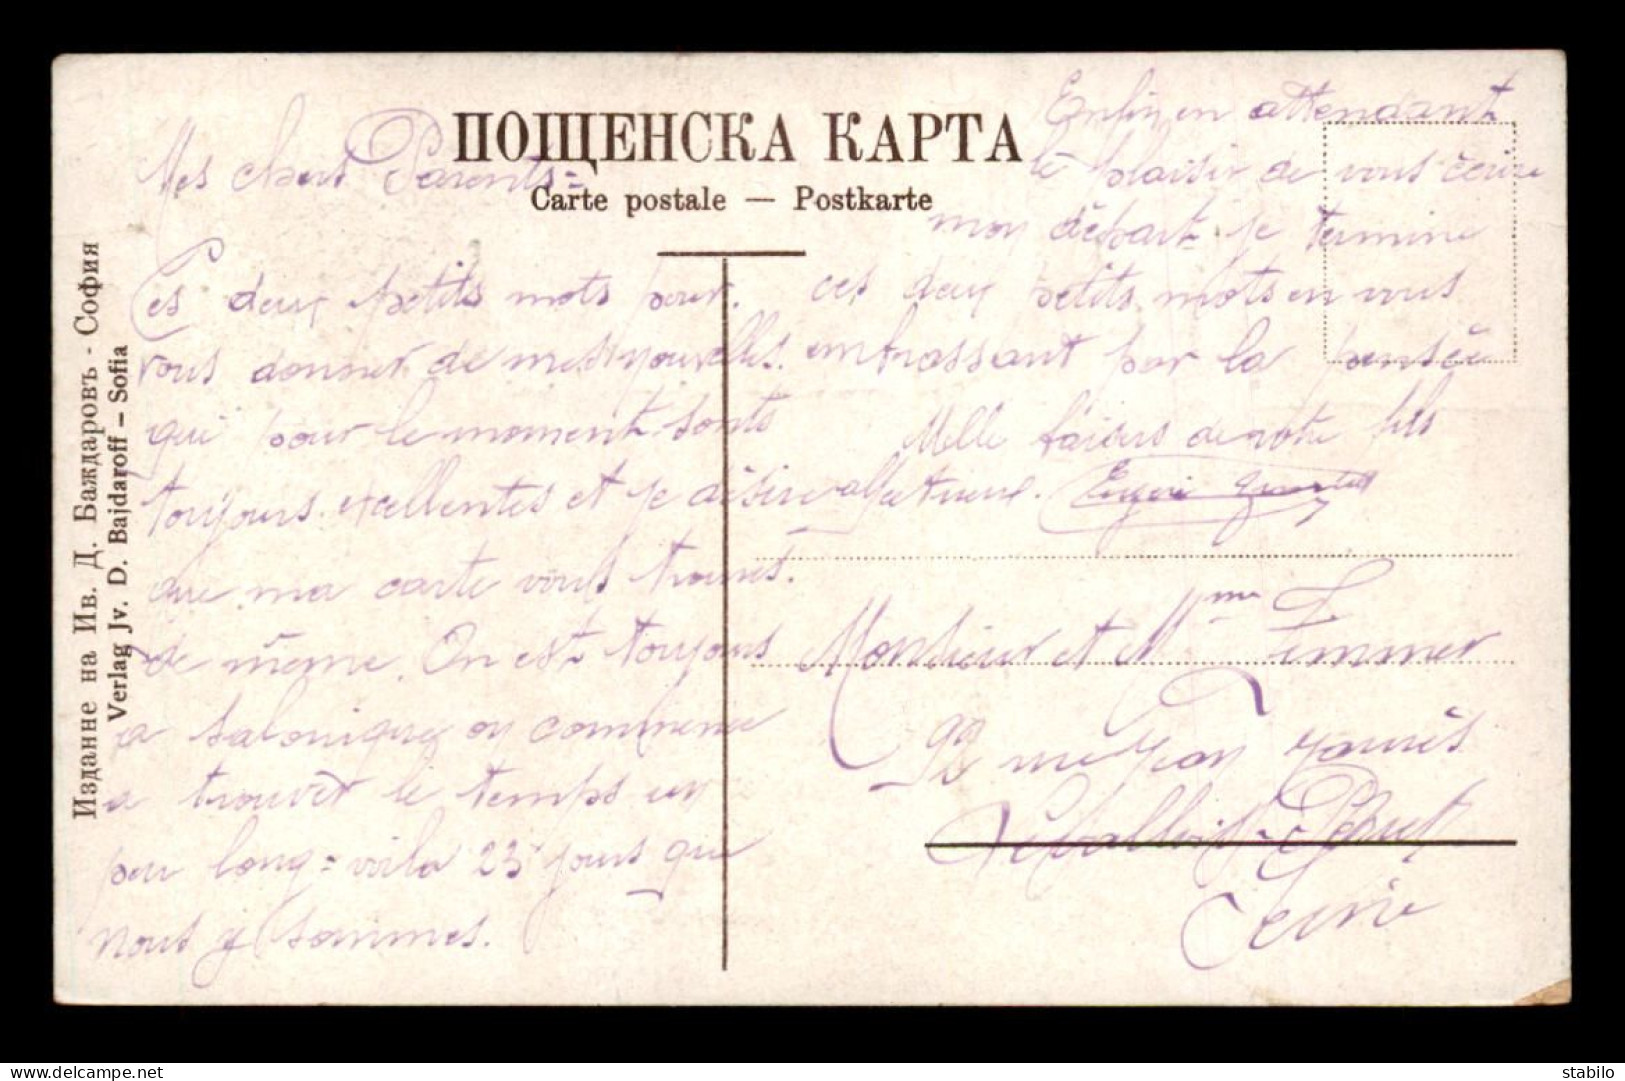 ПОЩЕНСКА КАРТА
Carte postale — Postkarte
Издание на Ив. Д. Баждаровъ - София
Verlag Jv. D. Bajdaroff – Sofia
Mes chers Parents =
Ces deux petits mots pour
vous donner de mes nouvelles
qui pour le moment sonts
toujours excellentes et je désire
que ma carte vous trouves
de même. On est toujours
a salonique on commence
a trouver le temps un
peu long = voila 25 jours que
nous y sommes.
Enfin en attendant
le plaisir de vous écrire
mon départ je termine
ces deux petits mots en vous
embrassant par la pensée
Mille baisers de votre fils
affectueux.
Monsieur et Mme
99 rue Jaurès
Levallois-Perret
Seine
stabilo
www.delcampe.net